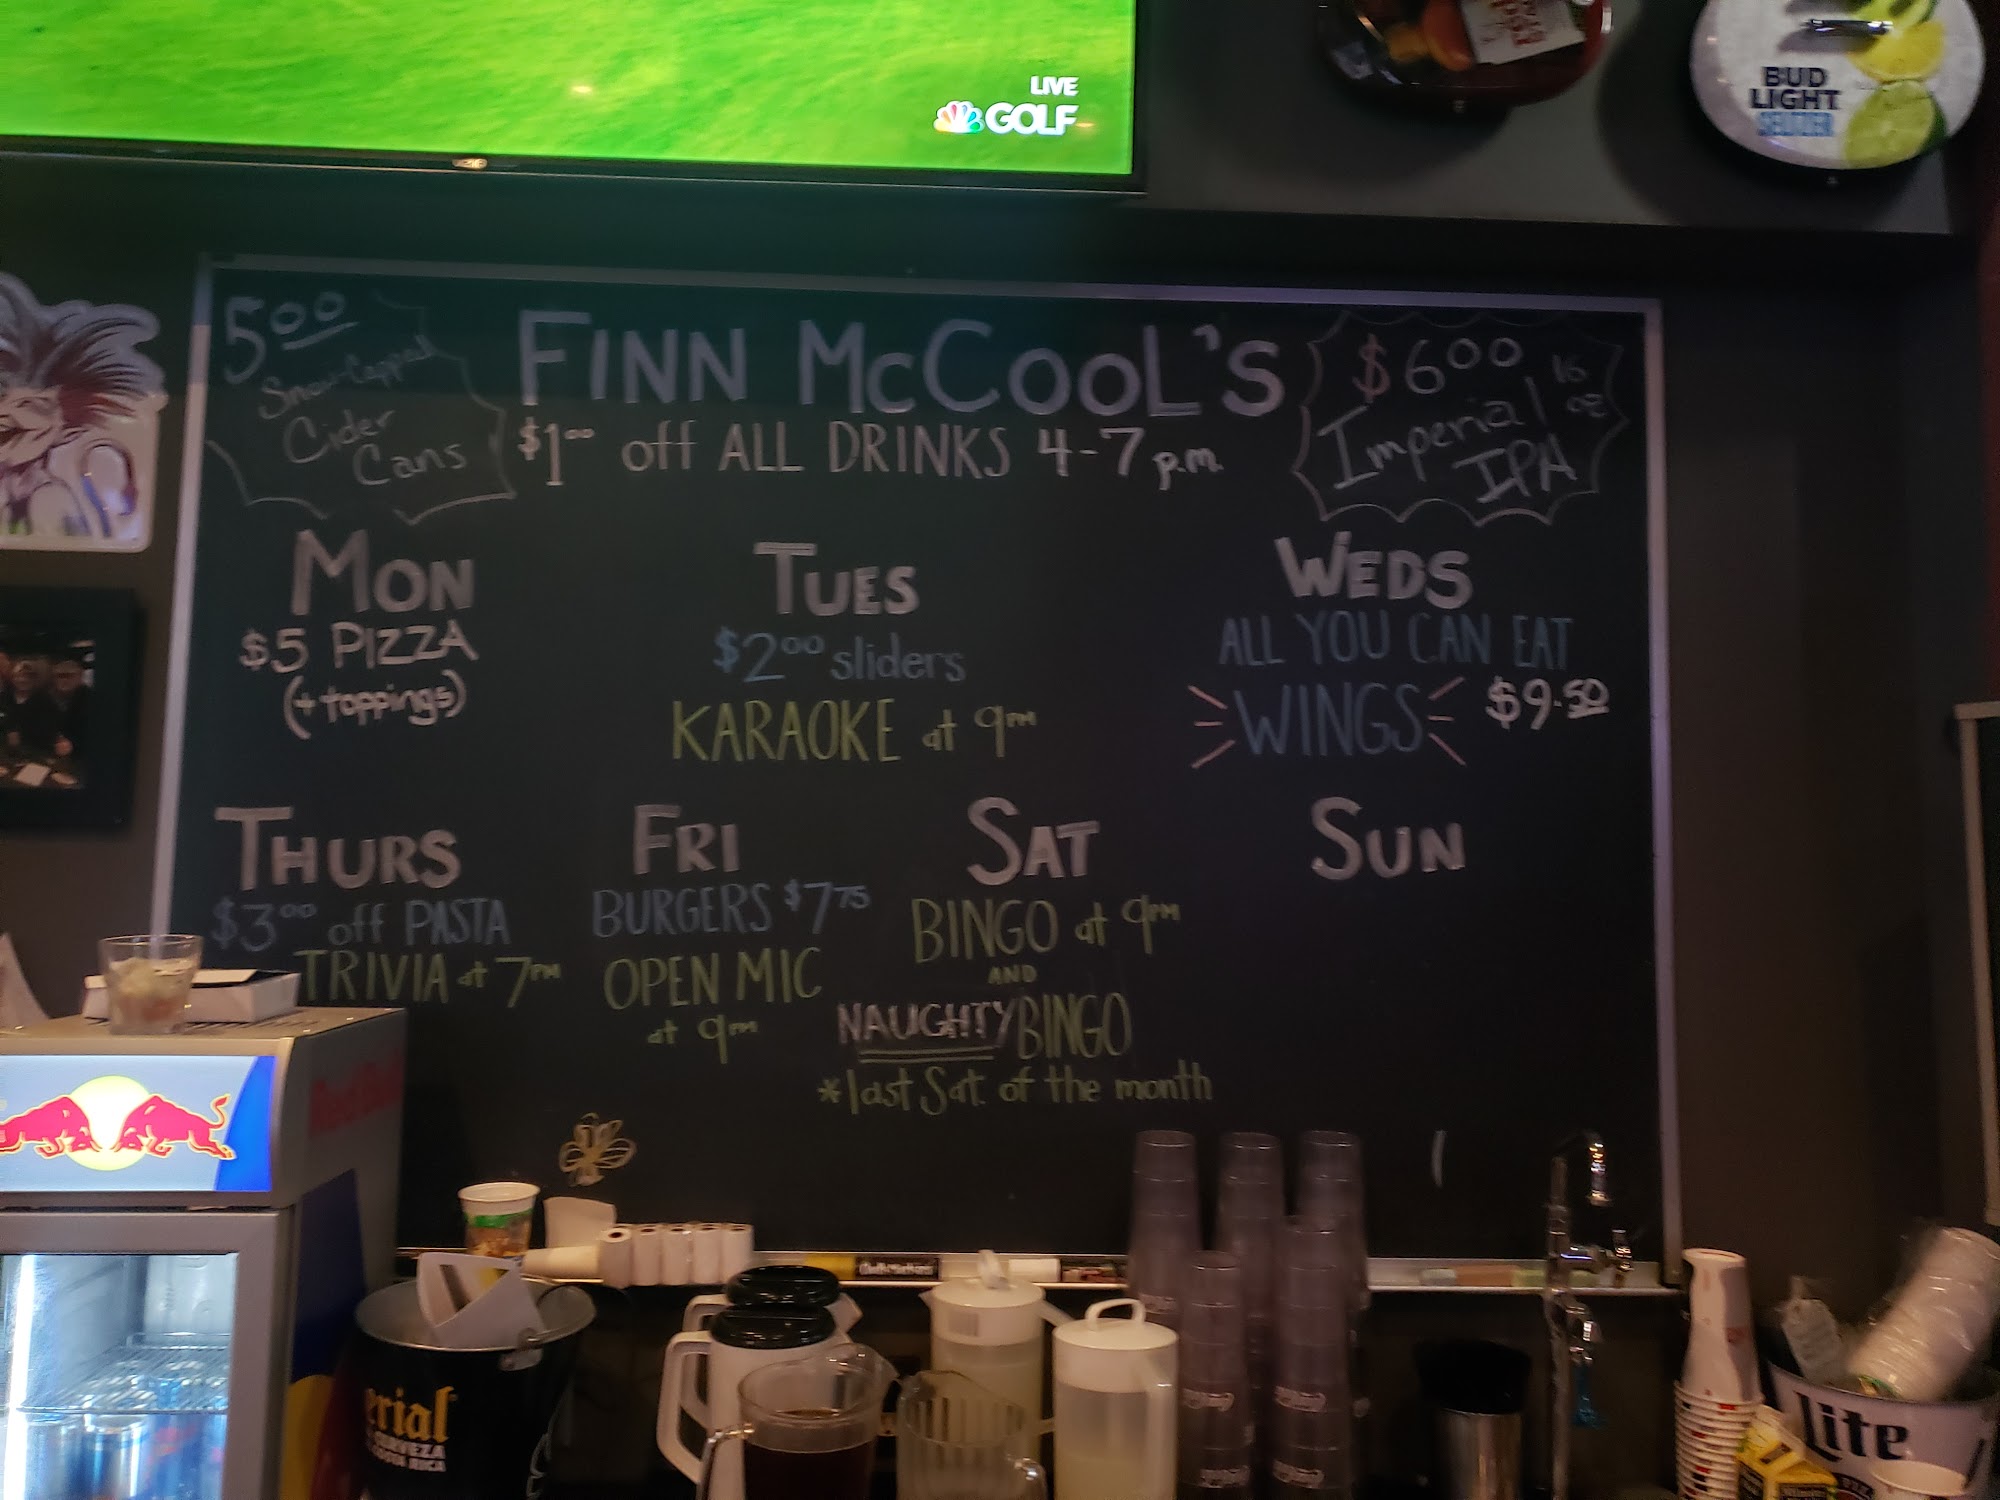 LIVE
GOLF
BUD
LIGHT
SELTZER
5.00
Snow-Capped
Cider
Cans
FINN McCOOL'S
$1.00 off ALL DRINKS 4-7 p.m.
$6.00
16 oz
Imperial
IPA
MON
$5 PIZZA
(+ toppings)
TUES
$2.00 sliders
KARAOKE at 9PM
WEDS
ALL YOU CAN EAT
WINGS $9.50
THURS
$3.00 off PASTA
TRIVIA at 7PM
FRI
BURGERS $7.75
OPEN MIC
at 9PM
SAT
BINGO at 9PM
AND
NAUGHTY BINGO
*last Sat. of the month
SUN
Red Bull
erial
CERVEZA
COSTA RICA
Lite